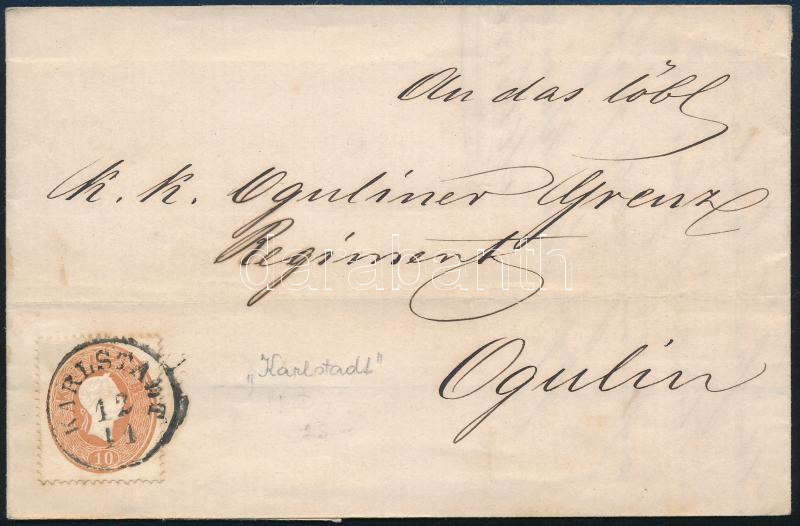 An das löbl
k. k. Oguliner Grenz
Regiment
darabanth
Ogulin
KARLSTADT
12
11
10
„Karlstadt"